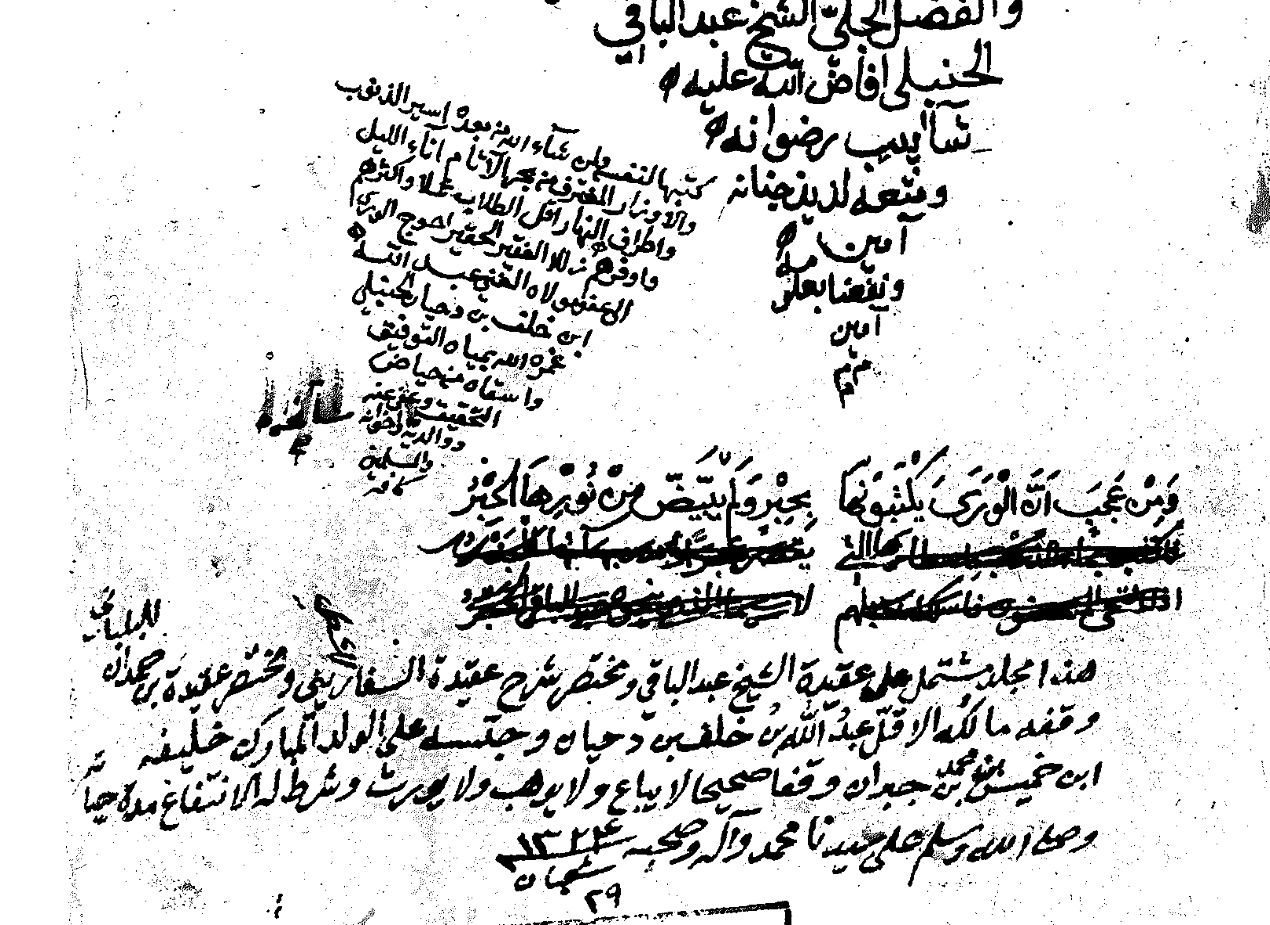 والفضل الجليّ الشيخ عبد الباقي
الحنبلي افاض الله عليه
شآبيب رضوانه
ومتعه لذيذ جنانه
آمين
ونفعنا بعلمه
آمين
كتبها لنفسه ولمن شآء الله من بعده اسير الذنوب
والاوزار المغترف من بحرها الآثام اناء الليل
واطراف النهار اقل الطلاب عملا واكثرهم
واوفرهم زللا الفقير الحقير احوج الورى
الى عفو مولاه الغني عبد الله
ابن خلف بن دحيان الحنبلي
غمره الله بمياه التوفيق
واسقاه من حياض
التحقيق وعفى عنه
ووالديه واخوانه
والمسلمين
كافه
وَمِنْ عَجَبٍ اَنَّ الْوَرَى يَكْتُبُونَهَا بِحِبْرٍ وَلَم يَبْيَضّ مِنْ نُورِهَا الحِبْرُ
هذا مجلد مشتمل على عقيدة الشيخ عبد الباقي ومختصر شرح عقيدة السفاريني ومختصر عقيدة بن حمدان
للبلباني
وقفه مالكه الاقل عبد الله بن خلف بن دحيان وحبسه على الولد المبارك خليفه
ابن خميس بن محمد بن جبران وقفا صحيحا لا يباع ولا يوهب ولا يورث وشرط له الانتفاع مدة حياته
وصلى الله وسلم على سيدنا محمد وآله وصحبه ١٣٢٤
شعبان
٢٩